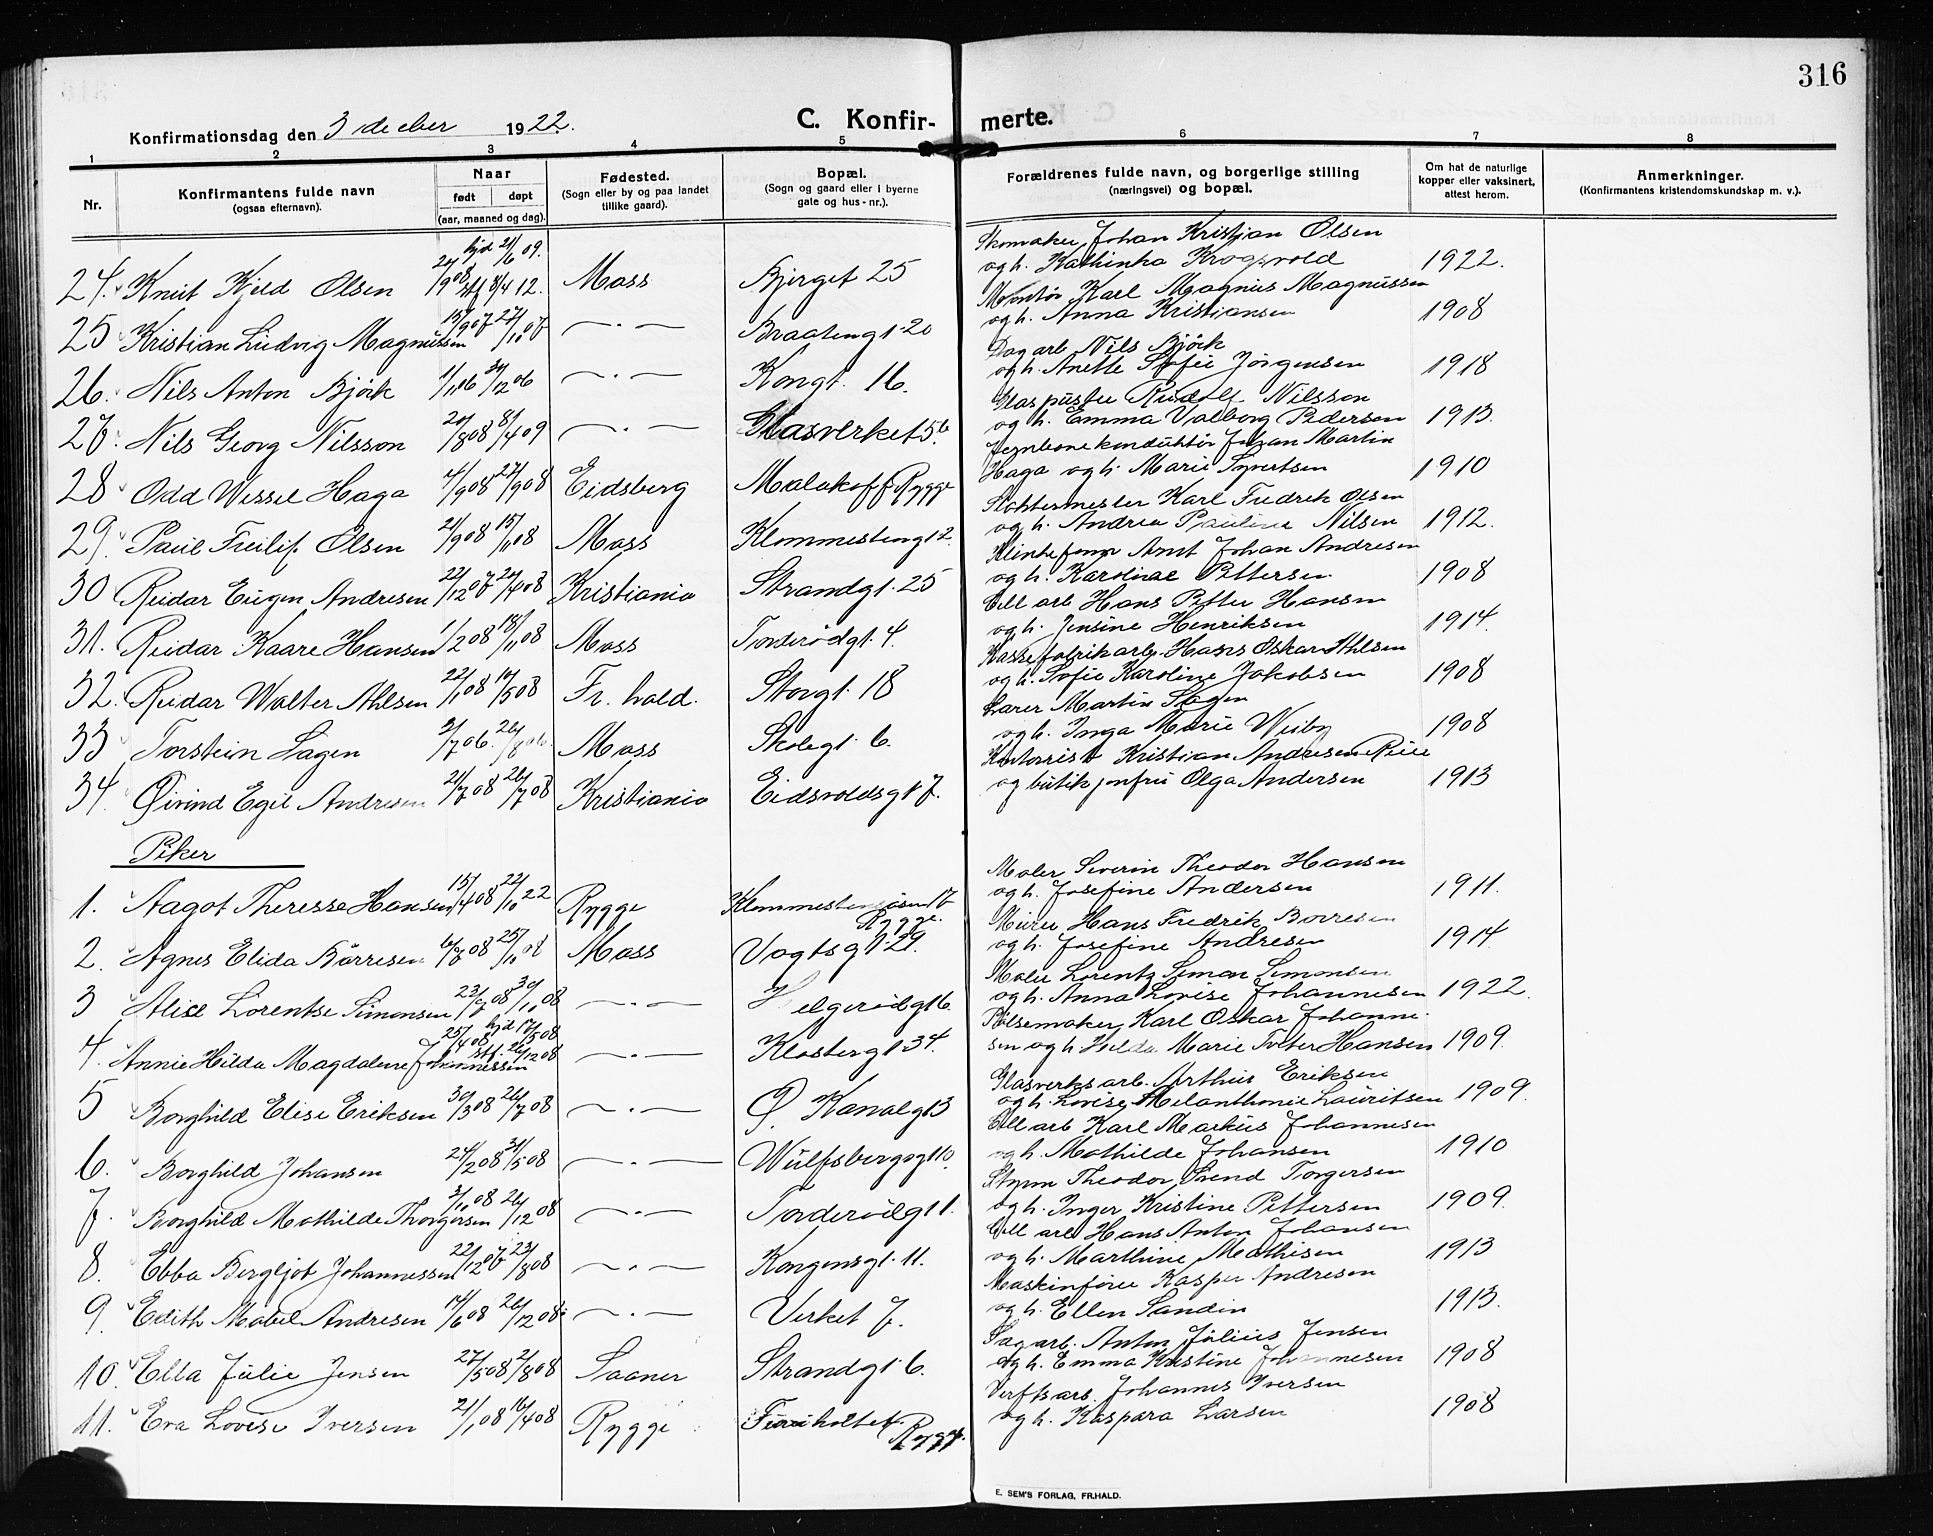 316
Konfirmationsdag den 3 desember 1922.
C. Konfirmerte.
1 2 3 4 5 6 7 8
Nr.
Konfirmantens fulde navn
(ogsaa efternavn).
Naar
født døpt
(aar, maaned og dag).
Fødested.
(Sogn eller by og paa landet
tillike gaard).
Bopæl.
(Sogn og gaard eller i byerne
gate og hus-nr.).
Forældrenes fulde navn, og borgerlige stilling
(næringsvei) og bopæl.
Om hat de naturlige
kopper eller vaksinert,
attest herom.
Anmerkninger.
(Konfirmantens kristendomskundskap m. v.).
hjd 21/6 09. Skomaker Johan Kristian Olsen
24. Knut Kjeld Olsen 19 08 stf 8/4 12. Moss Bjerget 25 og h. Kathinka Krogsvold 1922.
Montør Karl Magnus Magnussen
25 Kristian Ludvig Magnussen 15/9 07 27/10 07 —·— Braatengt. 20 og h. Anna Kristiansen 1908
Dagarb Nils Bjørk
26. Nils Anton Bjørk 1/1 06 31/12 06 —·— Kongt. 16. og h. Anette Sofie Jørgensen 1918
Glaspuster Rudolf Nilsson
27. Nils Georg Nilsson 20/8 08 8/4 09 —·— Glasverket 56. og h. Emma Valborg Pedersen 1913.
Jernbanekonduktør Johan Martin
28 Odd Wessel Haga 4/9 08 27/9 08 Eidsberg Malakoff Rygge Haga og h. Marie Syvertsen 1910
Slaktermester Karl Fredrik Olsen
29. Paul Freilif Olsen 21/9 08 15/11 08 Moss Klommestengt 2. og h. Andrea Pauline Nilsen 1912.
Arnt Johan Andresen
30 Reidar Eugen Andresen 22/12 07 20/4 08 Kristiania Strandgt. 25 og h. Karoline Pettersen 1908
Cell arb Hans Petter Hansen
31. Reidar Kaare Hansen 1/2 08 18/11 08 Moss Torderødgt. 4. og h. Jensine Henriksen 1914.
Kassefabrikarb. Hans Oskar Ahlsen
32. Reidar Walter Ahlsen 22/1 08 10/5 08 Fr. hald. Storgt. 18 og h. Sofie Karoline Jakobsen 1908
Lærer Martin Lagen
33 Torstein Lagen 3/7 06. 26/8 06. Moss Skolegt. 6. og h. Inga Marie Wiby 1908
Kontorist Kristian Andresen Riise
34. Øivind Egil Andresen 21/7 08 26/7 08 Kristiania Eidsvoldsgt 7. og butikjomfru Olga Andersen 1913
Piker
Maler Severin Theodor Hansen
1. Aagot Theresse Hansen 15/4 08 22/10 22 Rygge Klommestensøsen 17 Rygge. og h. Josefine Andersen 1911.
Murer Hans Fredrik Børresen
2. Agnes Elida Børresen 6/7 08 25/11 08 Moss Vogtsgt. 29. og h. Josefine Andresen 1914.
Maler Lorentz Simon Simonsen
3 Alise Lorentse Simonsen 23/9 08 30/11 08 —·— Helgerødgt 6. og h. Anna Lovise Johannesen 1922.
hjd 17/5 08 Pølsemaker Karl Oskar Johanne-
4. Annie Hilda Magdalene Johannessen 25/4 08 stf. 26/12 08 —·— Klostergt 34. sen og h. Hilda Marie Tveter Hansen 1909.
Glasverksarb. Arthur Eriksen
5 Borghild Elise Eriksen 30/3 08 26/7 08 —·— Ø. Kanalgt 3 og h. Lovise Melanthonie Lauritsen 1909.
Cell arb Karl Markus Johannesen
6. Borghild Johansen 24/2 08 31/5 08 —·— Wulfsbergsgt 10. og h. Mathilde Johansen 1910
Styrm Theodor Svend Torgersen
7. Borghild Mathilde Thorgersen 3/10 08 26/12 08 —·— Torderødgt 1. og h. Inger Kristine Pettersen 1909.
Cell arb Hans Anton Johansen
8. Ebba Bergljot Johannessen 22/12 07 23/8 08 —·— Kongensgt. 11. og h. Marthine Mathisen 1913
Maskinfører Kasper Andresen
9. Edith Mabel Andresen 14/6 08 26/12 08. —·— Verket 7. og h. Ellen Sandin 1913.
Sagarb. Anton Julius Jensen
10. Ella Julie Jensen 27/5 08 2/8 08 Saaner Strandgt. 6. og h. Emma Kristine Johannesen 1908
Verftsarb. Johannes Iversen
11. Eva Lovise Iversen 21/1 08 16/4 08 Rygge Fureholtet Rygge. og h. Kaspara Larsen 1908
E. SEM'S FORLAG, FR.HALD.